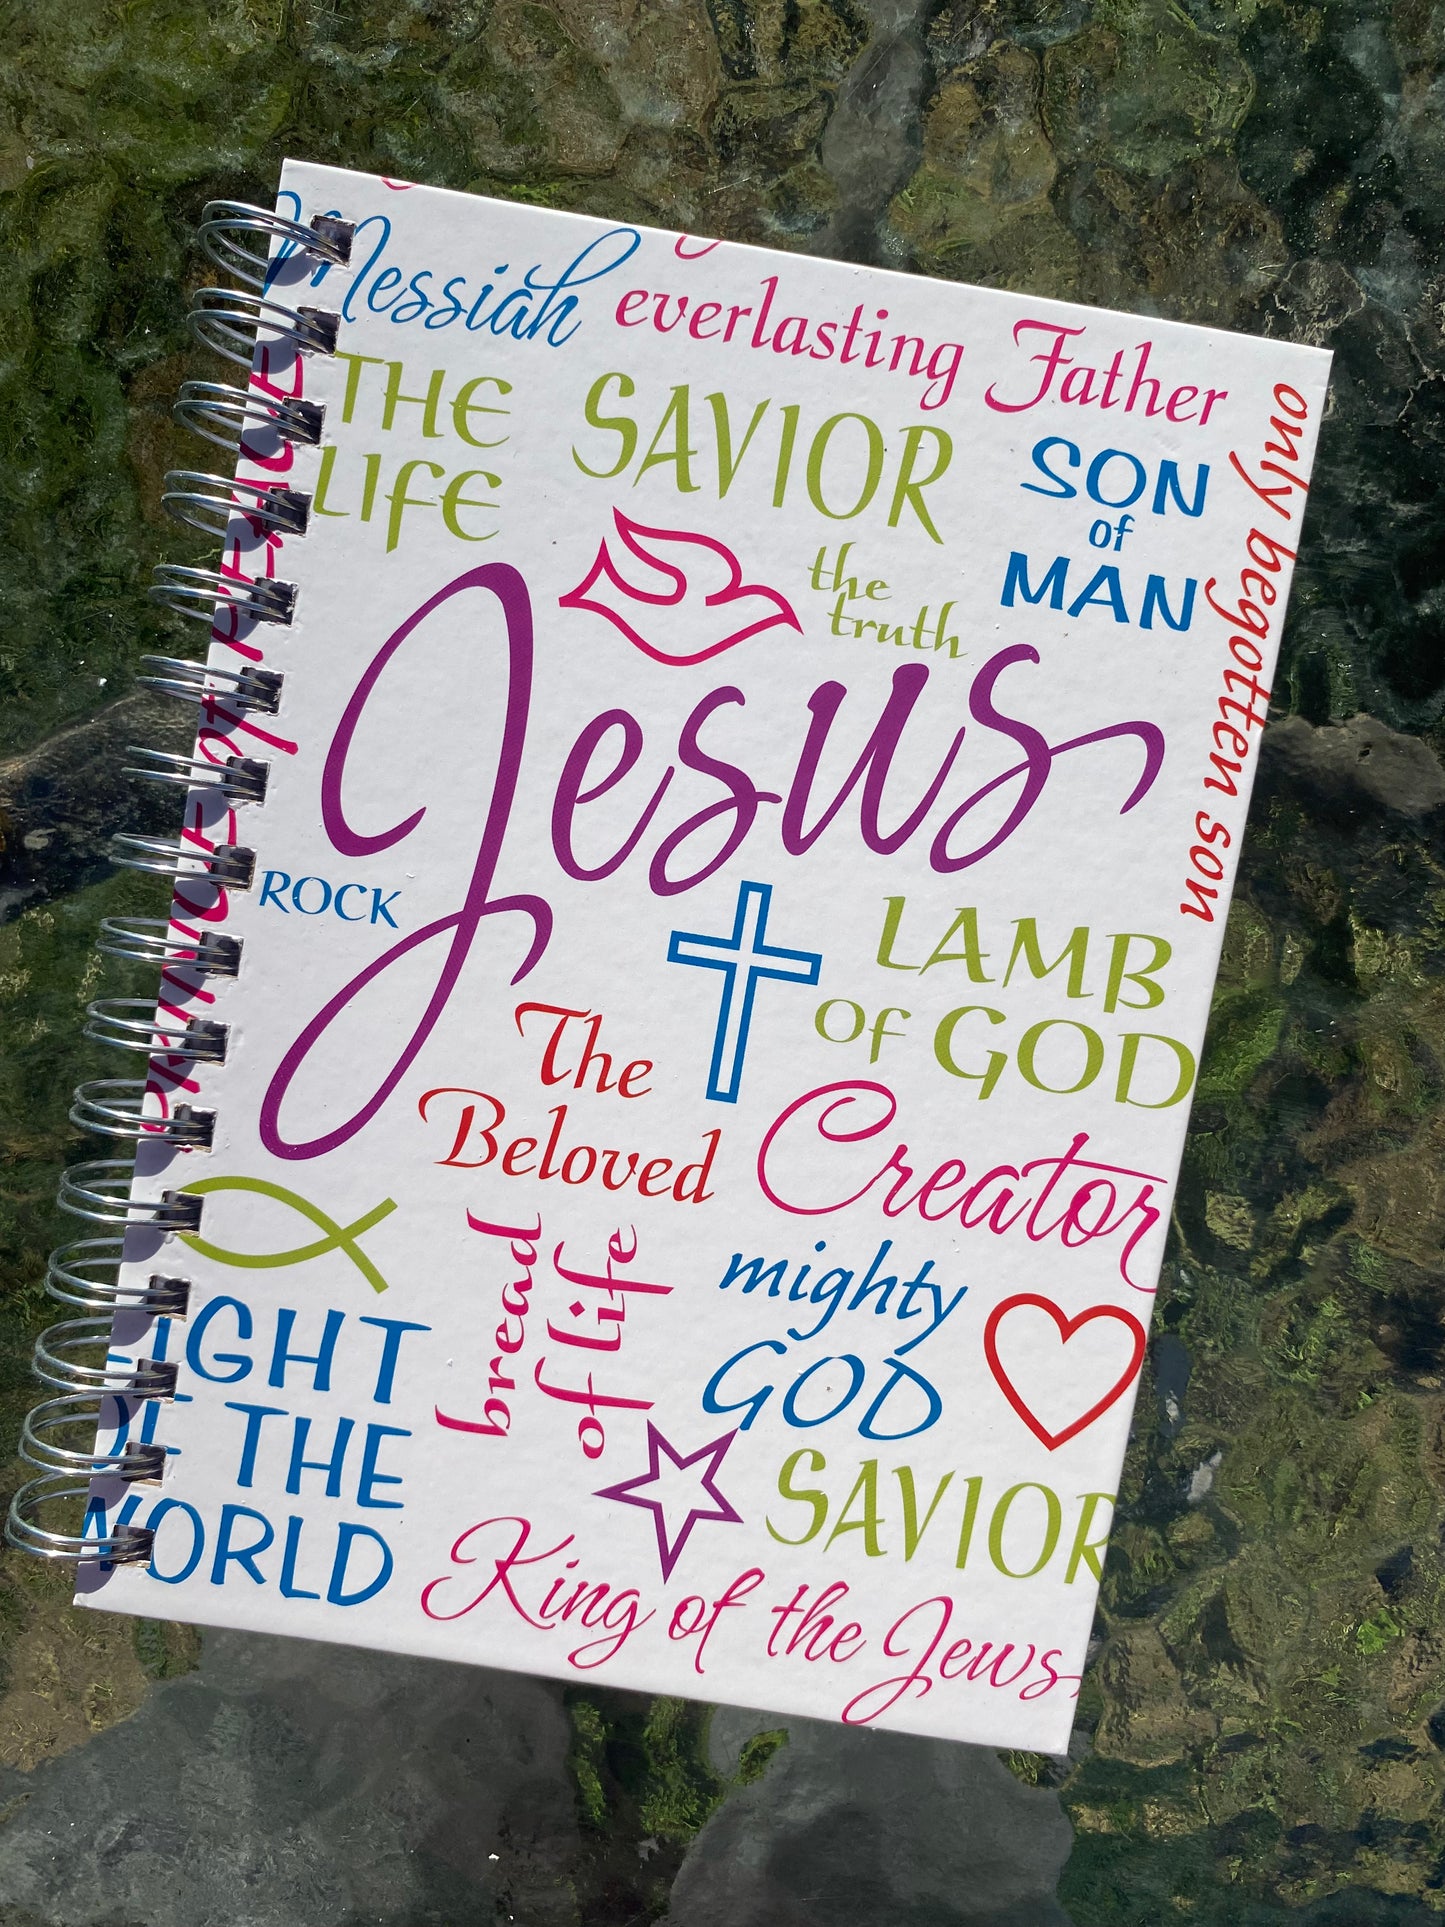 Messiah
everlasting Father
THE
LIFE
SAVIOR
SON
of
MAN
only begotten son
the
truth
PRINCE of PEACE
Jesus
ROCK
LAMB
OF GOD
The
Beloved
Creator
bread
of life
mighty
GOD
LIGHT
OF THE
WORLD
SAVIOR
King of the Jews